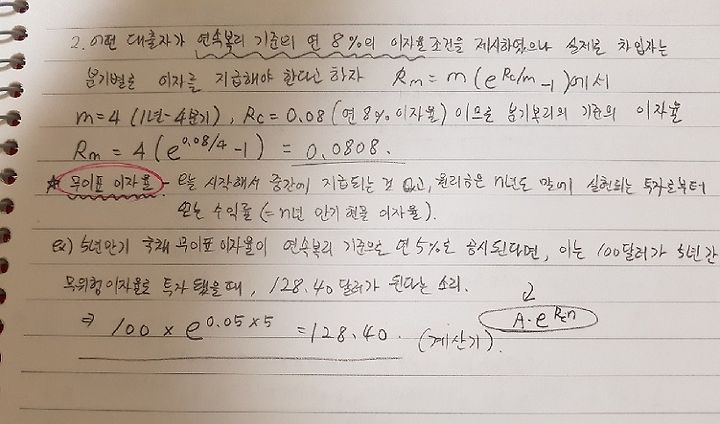 2. 어떤 대출자가 연속복리 기준의 연 8%의 이자율 조건을 제시하였으나 실제로 차입자는
분기별로 이자를 지급해야 한다고 하자 Rm = m(e^Rc/m -1)에서
m=4 (1년-4분기), Rc = 0.08 (연 8% 이자율) 이므로 분기복리의 기준의 이자율
Rm = 4(e^0.08/4 -1) = 0.0808.
* 무이표 이자율 - 오늘 시작해서 중간에 지급되는 것 없고, 원리금은 n년도 말에 실현되는 투자로부터
얻는 수익률 (= n년 만기 현물 이자율).
ex) 5년만기 국채 무이표 이자율이 연속복리 기준으로 연 5%로 공시된다면, 이는 100달러가 5년간
무위험이자율로 투자 됐을 때, 128.40 달러가 된다는 소리.
↓
⇒ 100 × e^0.05×5 = 128.40. (계산기).
A·e^Rcn